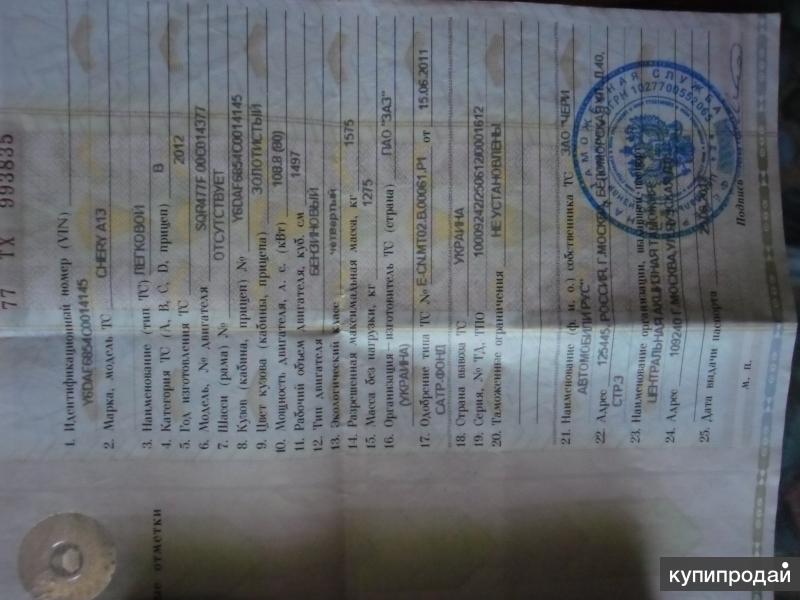 77 ТХ 993835
1. Идентификационный номер (VIN)
Y6DAF6854C0014145
2. Марка, модель ТС CHERY A13
3. Наименование (тип ТС) ЛЕГКОВОЙ
4. Категория ТС (А, В, С, D, прицеп) В
5. Год изготовления ТС 2012
6. Модель, № двигателя SQR477F 000C014377
7. Шасси (рама) № ОТСУТСТВУЕТ
8. Кузов (кабина, прицеп) № Y6DAF6854C0014145
9. Цвет кузова (кабины, прицепа) ЗОЛОТИСТЫЙ
10. Мощность двигателя, л. с. (кВт) 108.8 (80)
11. Рабочий объем двигателя, куб. см 1497
12. Тип двигателя БЕНЗИНОВЫЙ
13. Экологический класс четвертый
14. Разрешенная максимальная масса, кг 1575
15. Масса без нагрузки, кг 1275
16. Организация–изготовитель ТС (страна) ПАО "ЗАЗ"
(УКРАИНА)
17. Одобрение типа ТС № E-CN.MT02.B.00061.P1 от 15.06.2011
САТР-ФОНД
18. Страна вывоза ТС УКРАИНА
19. Серия, № ТД, ТПО
20. Таможенные ограничения НЕ УСТАНОВЛЕНЫ
21. Наименование (ф. и. о.) собственника ТС ЗАО "ЧЕРИ
АВТОМОБИЛИ РУС"
22. Адрес 125445, РОССИЯ, Г.МОСКВА, БЕЛОМОРСКАЯ УЛ, Д.40,
СТР.3
23. Наименование организации, выдавшей паспорт
ЦЕНТРАЛЬНАЯ АКЦИЗНАЯ ТАМОЖНЯ
24. Адрес 109240 Г.МОСКВА,
25. Дата выдачи паспорта
М. П. Подпись
ТАМОЖЕННАЯ СЛУЖБА
ОГРН 1027700552065
ые отметки
купипродай